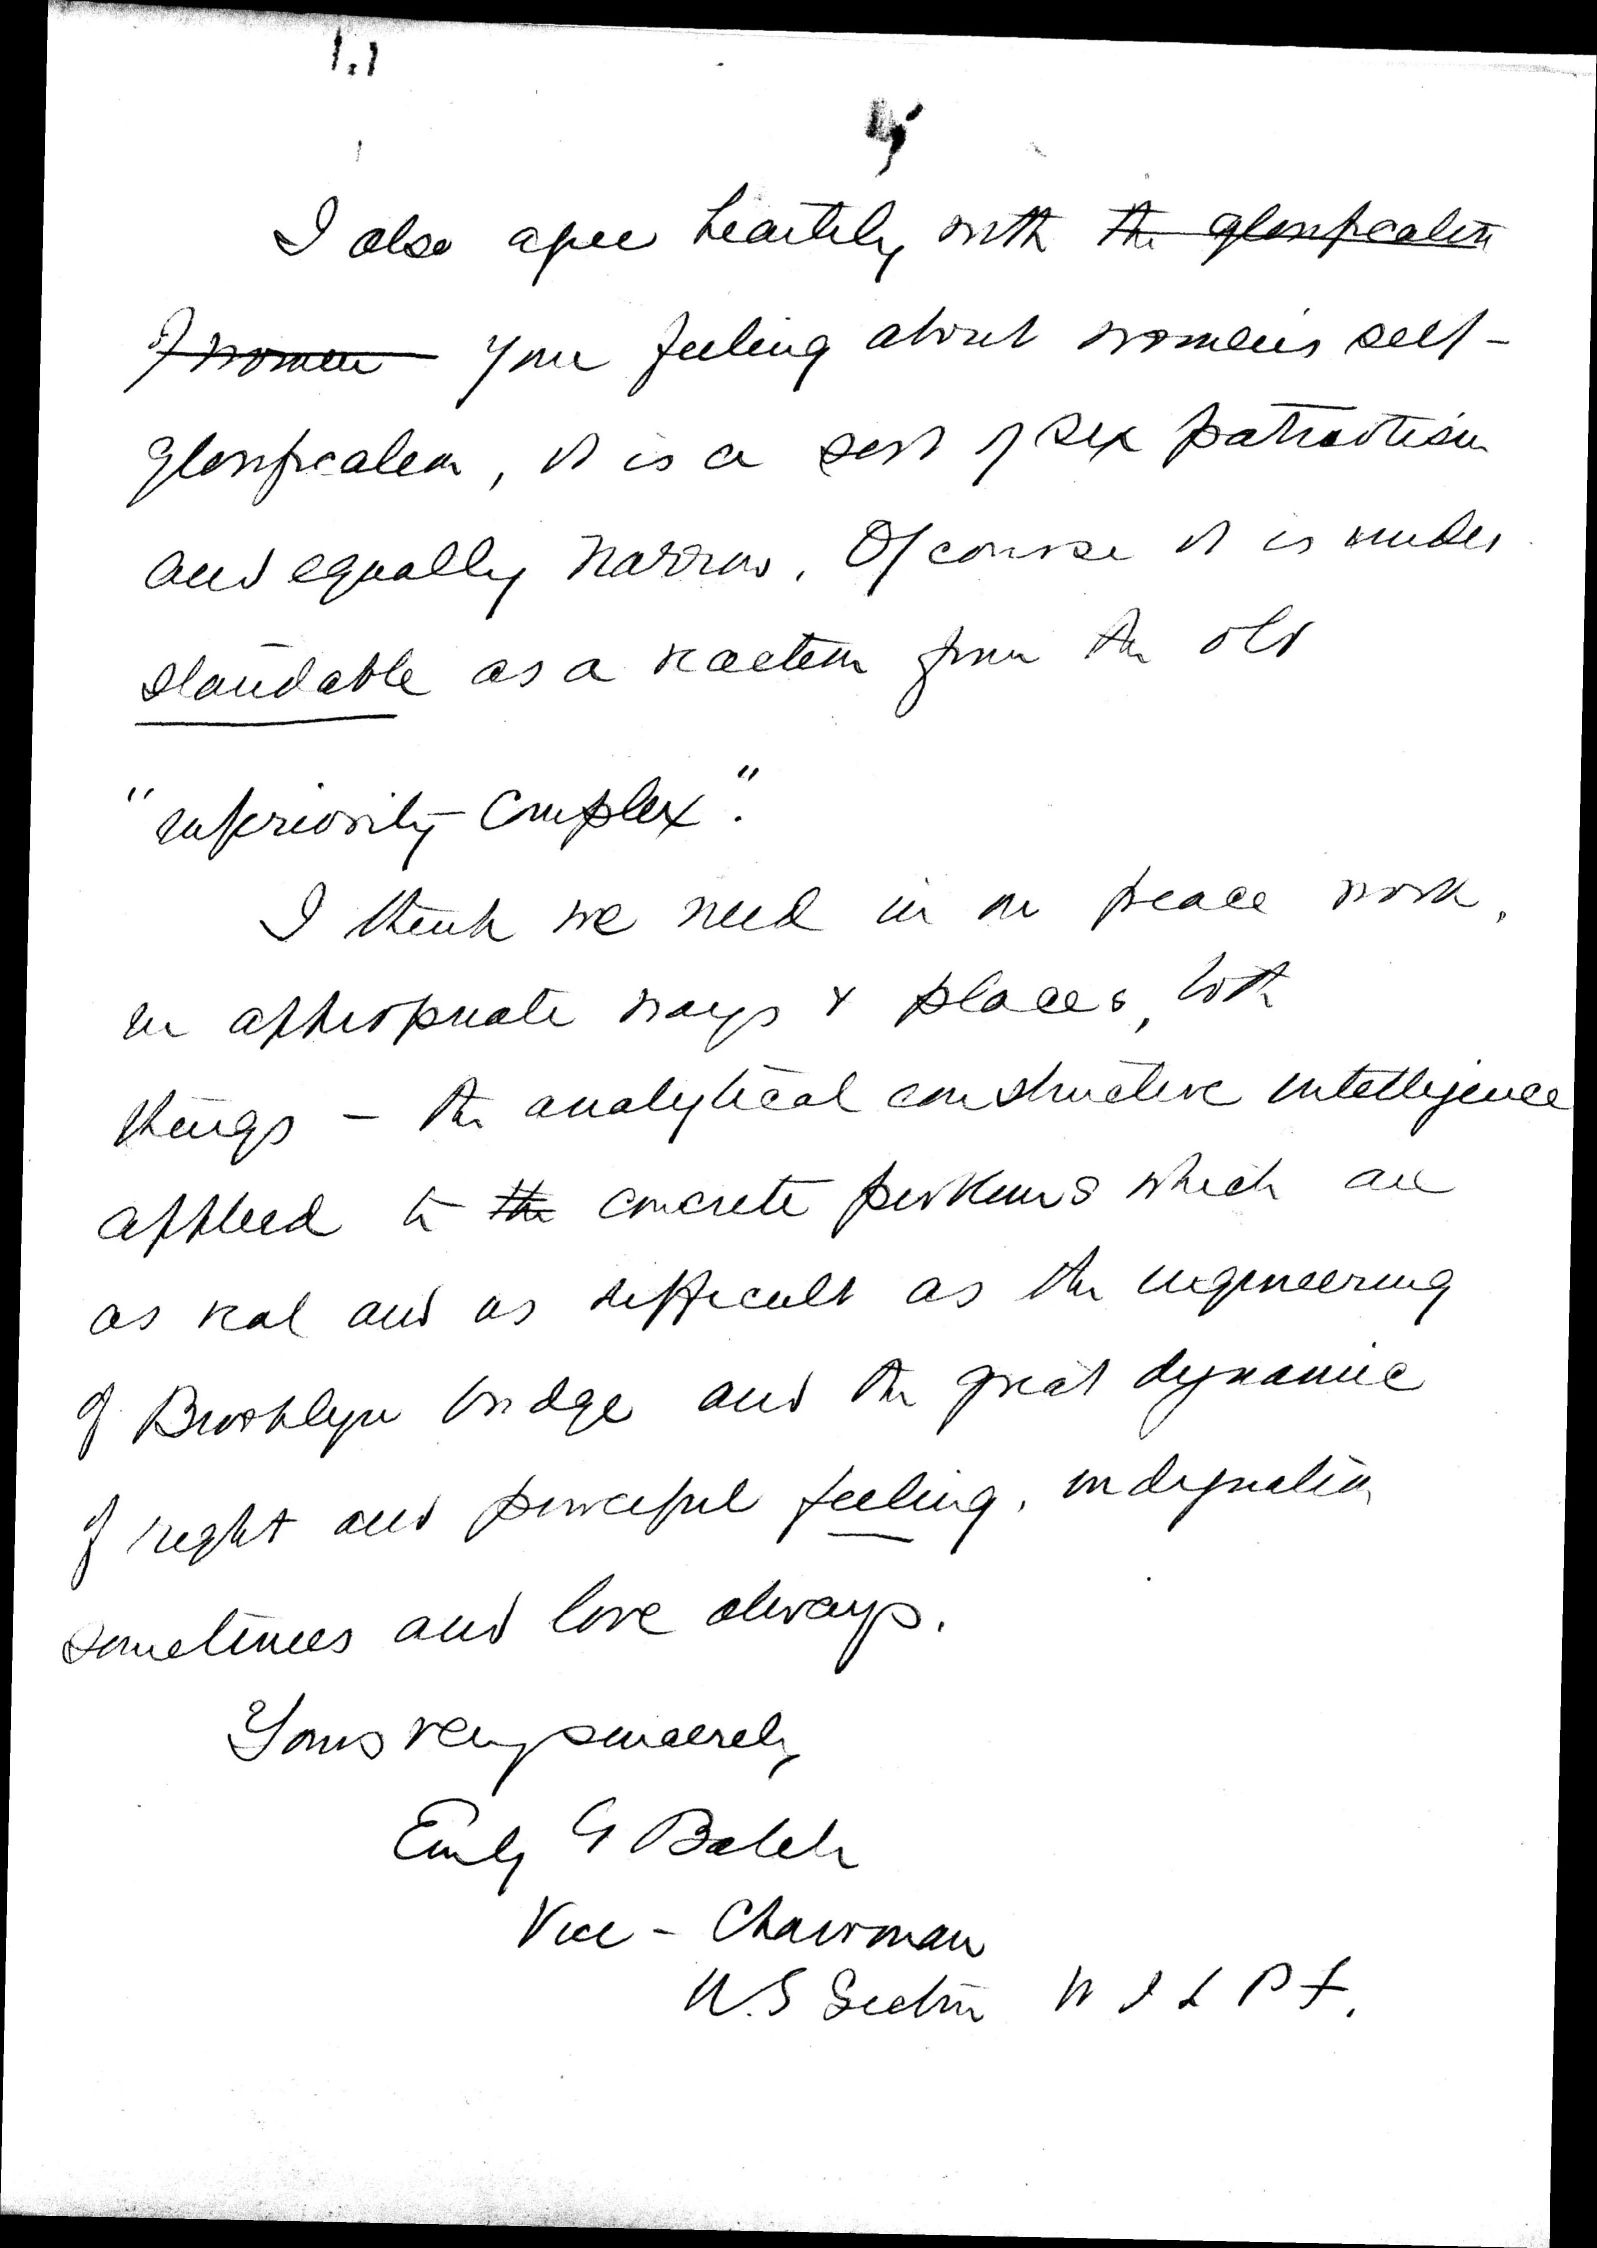 I also agree heartily with the glorification
of women your feeling about women's self-
glorification, it is a sort of sex patriotism
and equally narrow. Of course it is under
standable as a reaction from the old
"inferiority complex".
I think we need in our peace work,
in appropriate ways & places, both
things – the analytical constructive intelligence
applied to the concrete problems which are
as real and as difficult as the engineering
of Brooklyn bridge and the great dynamic
of right and powerful feeling, indignation
sometimes and love always.
Yours very sincerely
Emily G Balch
Vice - Chairman
U.S Section W I L P F.